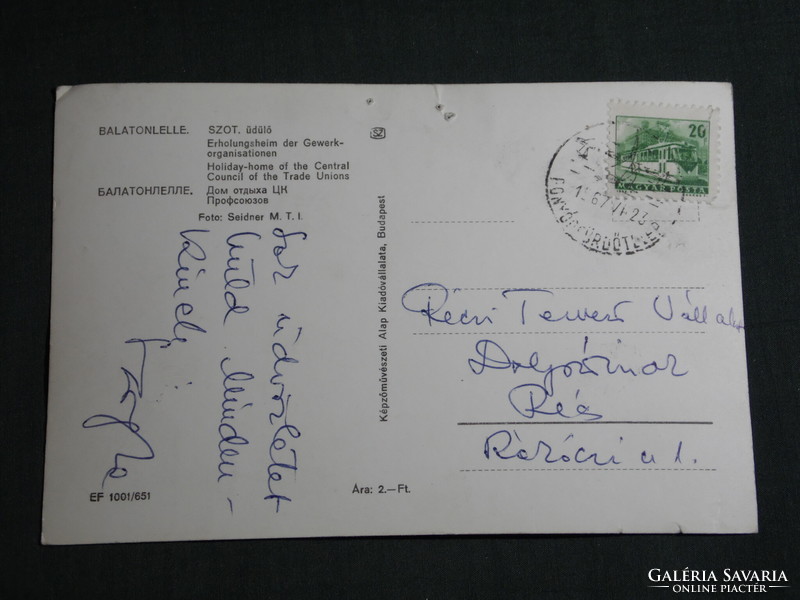 BALATONLELLE. SZOT. üdülő
Erholungsheim der Gewerk-
organisationen
Holiday-home of the Central
Council of the Trade Unions
БАЛАТОНЛЕЛЛЕ. Дом отдыха ЦК
Профсоюзов
Foto: Seidner M. T. I.
Sok üdvözletet
küld Minden-
kinek
EF 1001/651
Ára: 2.—Ft.
Képzőművészeti Alap Kiadóvállalata, Budapest
20
MAGYAR POSTA
Pécsi Tervező Vállalat
Dolgozóinak
Pécs
Rákóczi u 1.
GALÉRIA SAVARIA
ONLINE PIACTÉR